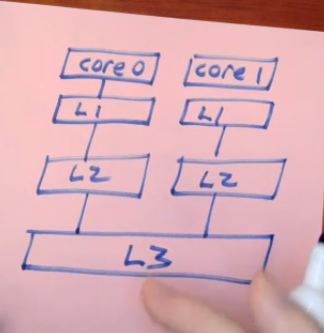 core 0 core 1
L1 L1
L2 L2
L3